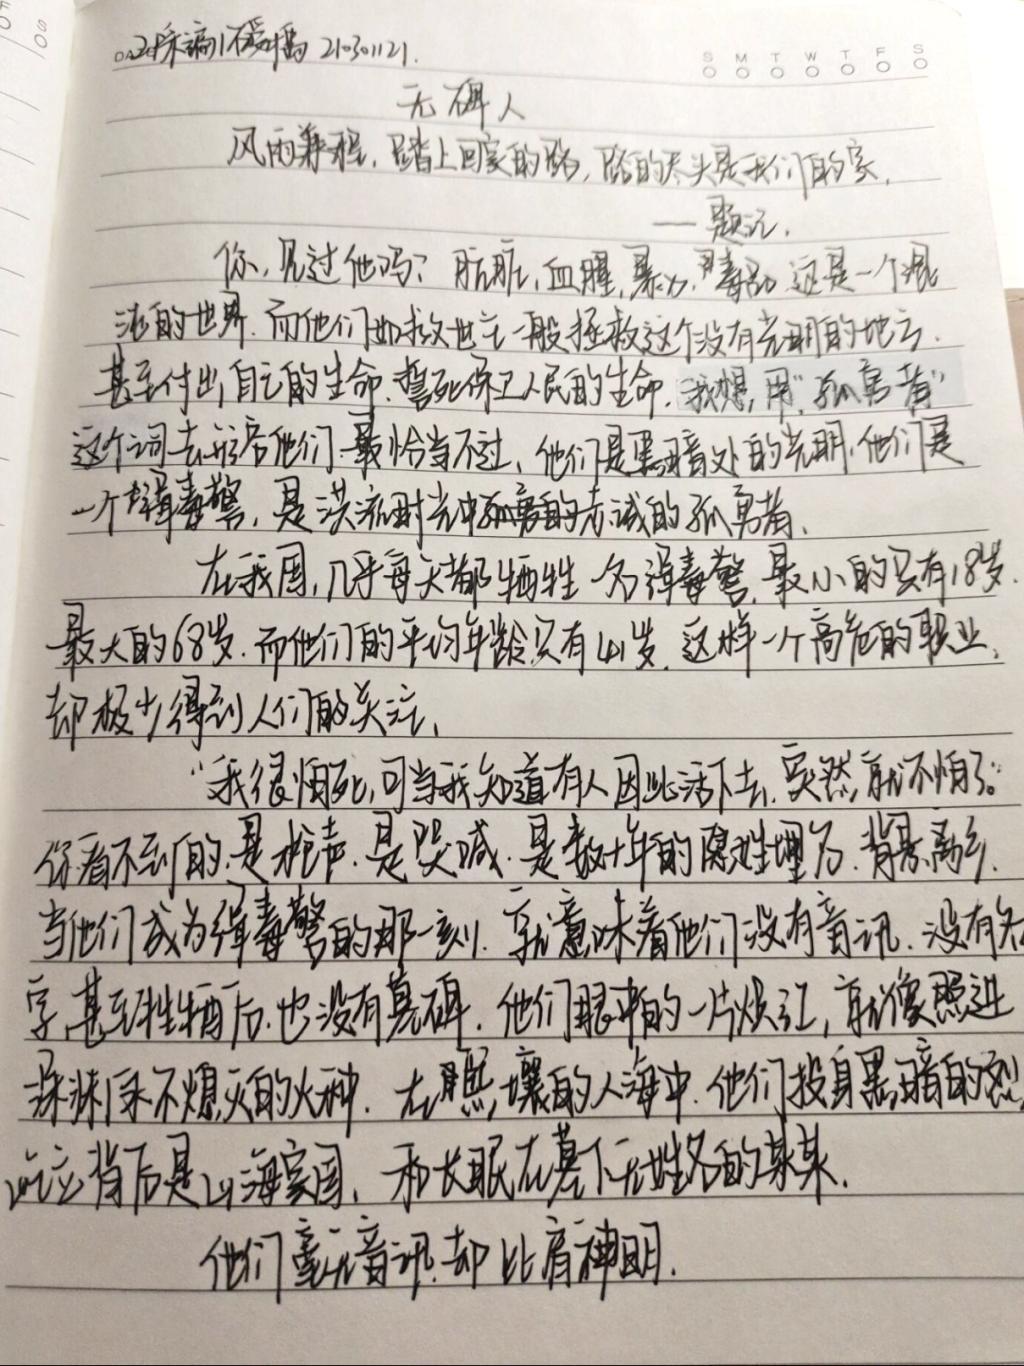 21030121.
S M T W T F S
无碑人
风雨兼程，踏上回家的路，路的尽头是我们的家.
——题记.
你，见过他吗？肮脏，血腥，暴力，毒品.这是一个混
浊的世界.而他们如救世主一般拯救这个没有光明的地方.
甚至付出自己的生命.誓死保卫人民的生命.我想，用"孤勇者"
这个词去形容他们最恰当不过.他们是黑暗处的光明.他们是
一个缉毒警，是洪流时光中赤诚的孤勇者.
在我国，几乎每天都牺牲一名缉毒警，最小的只有18岁.
最大的68岁.而他们的平均年龄只有41岁.这样一个高危的职业、
却极少得到人们的关注.
"我很怕死，可当我知道有人因此活下去.突然，就不怕了."
你看不到的.是枪声.是哭喊.是数十年的隐姓埋名.背景离乡.
当他们成为缉毒警的那一刻.就意味着他们没有音讯.没有名
字.甚至牲牺后.也没有墓碑.他们眼中的一片炽红，就像照进
不熄灭的火种.在熙壤的人海中.他们投身黑暗的
背后是山海家国.和长眠在墓下无姓名的某某.
他们毫无音讯.却比肩神明.